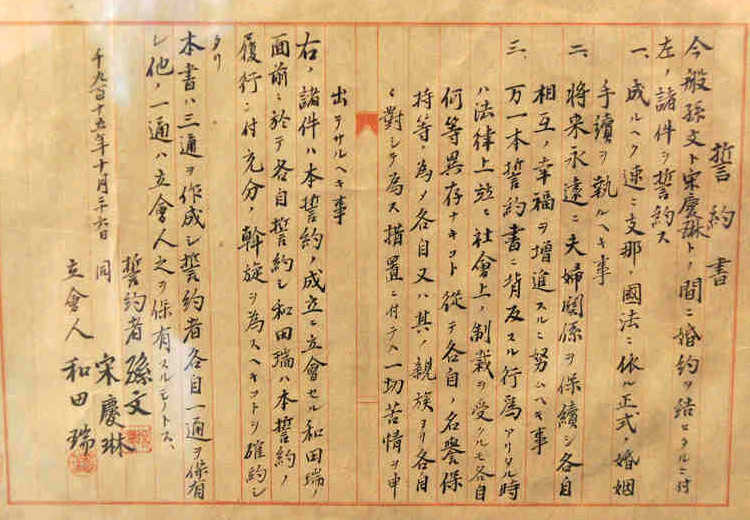 誓約書
今般孫文ト宋慶琳トノ間ニ婚約ヲ結ヒタルニ付
左ノ諸件ヲ誓約ス
一、成ルヘク速ニ支那ノ國法ニ依ル正式ノ婚姻
手續ヲ執ルヘキ事
二、將来永遠ニ夫婦関係ヲ保續シ各自
相互ノ幸福ヲ増進スルニ努ムヘキ事
三、万一本誓約書ニ背反スル行為アリタル時
ハ法律上並ニ社會上ノ制裁ヲ受クルモ各自
何等異存ナキコト從テ各自ノ名譽保
持等ノ為メ各自又ハ其ノ親族ヨリ各自
ニ對シテ為ス措置ニ付テハ一切苦情ヲ申
出テサルヘキ事
右ノ諸件ハ本誓約ノ成立ニ立會セル和田瑞ノ
面前ニ於テ各自誓約シ和田瑞ハ本誓約ノ
履行ニ付充分ノ斡旋ヲ為スヘキコトヲ確約シ
タリ
本書ハ三通ヲ作成シ誓約者各自一通ヲ保有
シ他ノ一通ハ立會人之ヲ保有スルモノトス、
誓約者 孫文
同 宋慶琳
立會人 和田瑞
千九百十五年十月廿六日